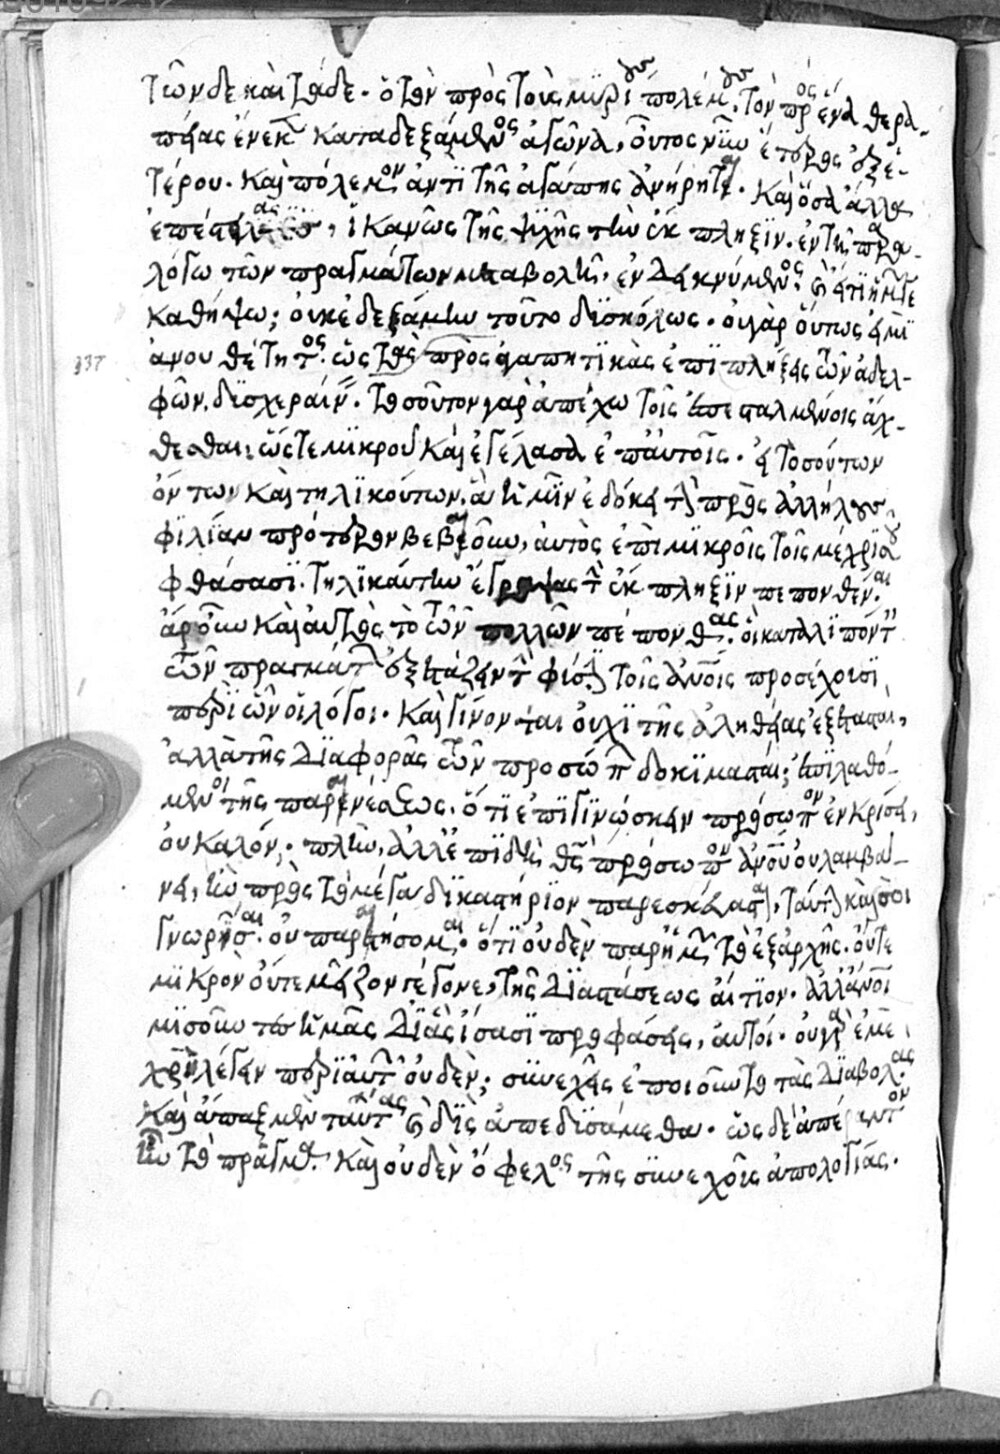 των δε και τάδε. ὅταν πρὸς τοὺς μυρίους πολέμους, τὸν πρὸς ἕνα θερα-
πείας ἕνεκεν καταδεξάμενος ἀγῶνα, οὗτος νῦν ἑτέρας ὀξυ-
τέρου. Καὶ πόλεμον ἀντὶ τῆς ἀγάπης ἀνήρηται. Καὶ ὅσα ἄλλα
ἱκανῶς τῆς ψυχῆς τὴν ἔκπληξιν. ἐν τῇ παρα-
λόγω τῶν πραγμάτων μεταβολῇ, ἐνδεικνύμενος. ἔτι ἡμῖν γε
καθήψω; οὐκ ἐδεξάμην τοῦτο δυσκόλως. οὐ γὰρ οὕτως εἰμὶ
337 ἀνουθέτητος. ὡς τὰς πρὸς ἀγαπητικὰς ἐπιπλήξεις τῶν ἀδελ-
φῶν, δυσχεραίνειν. τοσοῦτον γὰρ ἀπέχω τοῖς ἐπεσταλμένοις ἄχ-
θεσθαι, ὥστε μικροῦ καὶ ἐγέλασα ἐπ' αὐτοῖς. εἰ τοσούτων
ὄντων καὶ τηλικούτων, ἃ ἡμῖν ἐδόκει τὴν πρὸς ἀλλήλους
φιλίαν πρότερον βεβαιοῦν, αὐτὸς ἐπὶ μικροῖς τοῖς μέχρις οὗ
φθάσασι. τηλικαύτην ἔγραψας τὴν ἔκπληξιν πεπονθέναι.
ἄρ' οὖν καὶ αὐτὸς τὸ τῶν πολλῶν πέπονθας. οἱ καταλιπόντες
τῶν πραγμάτων ἐξετάζειν τὴν φύσιν τοῖς ἀνοις προσέχουσι
περὶ ὧν οἱ λόγοι. Καὶ γίνονται οὐχὶ τῆς ἀληθείας ἐξετασταὶ,
ἀλλὰ τῆς διαφορᾶς τῶν προσώπων δοκιμασταὶ; ἐπιλαθό-
μενοι τῆς παραινέσεως. ὅτι ἐπιγινώσκειν πρόσωπον ἐν κρίσει,
οὐ καλόν. πλὴν, ἀλλ' ἐπειδὴ θς πρόσωπον ἀνου οὐ λαμβά-
νει, ἣν πρὸς τὸ μέγα δικαστήριον παρεσκεύασται, ταύτην καὶ σοι
γνωρίσαι οὐ παραιτήσομαι. ὅτι οὐδὲν παρ' ἡμῶν τὸ ἐξαρχῆς. οὔτε
μικρὸν οὔτε μεῖζον γέγονε, τῆς διαστάσεως αἴτιον. ἀλλ' ἄνοι
μισοῦντες ἡμᾶς δι' ἃς ἴσασι προφάσεις, αὐτοί. οὐ γὰρ ἐμὲ
χρὴ λέγειν περὶ αὐτῶν οὐδὲν; συνεχεῖς ἐποιοῦντο τὰς διαβολάς.
Καὶ ἅπαξ μὲν ταύτας καὶ δὶς ἀπεδυσάμεθα. ὡς δὲ ἀπέραντον
ἦν τὸ πρᾶγμα. Καὶ οὐδὲν ὄφελος τῆς συνεχοῦς ἀπολογίας.